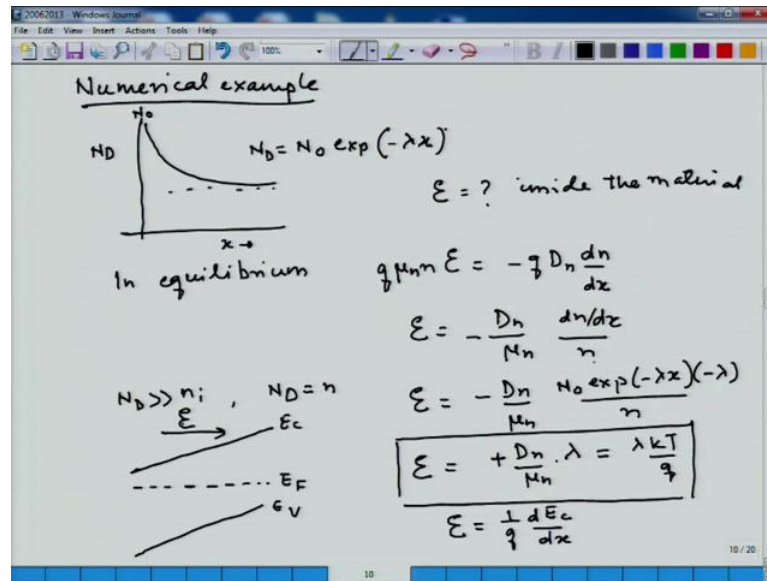 20062013 - Windows Journal
File Edit View Insert Actions Tools Help
100%
B I
Numerical example
N₀
N_D
N_D = N₀ exp (-λx)
x →
ℰ = ? inside the material
In equilibrium
q μₙ n ℰ = - q Dₙ dn/dx
ℰ = - Dₙ/μₙ (dn/dx)/n
N_D >> nᵢ , N_D = n
ℰ = - Dₙ/μₙ N₀ exp(-λx)(-λ)/n
ℰ
E_C
E_F
E_V
ℰ = + Dₙ/μₙ . λ = λkT/q
ℰ = 1/q dE_C/dx
10 / 20
10